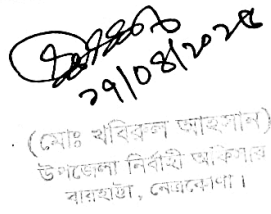 ২৭/০৪/২০২৫
(মোঃ খবিরুল আহসান)
উপজেলা নির্বাহী অফিসার
বারহাট্টা, নেত্রকোণা।